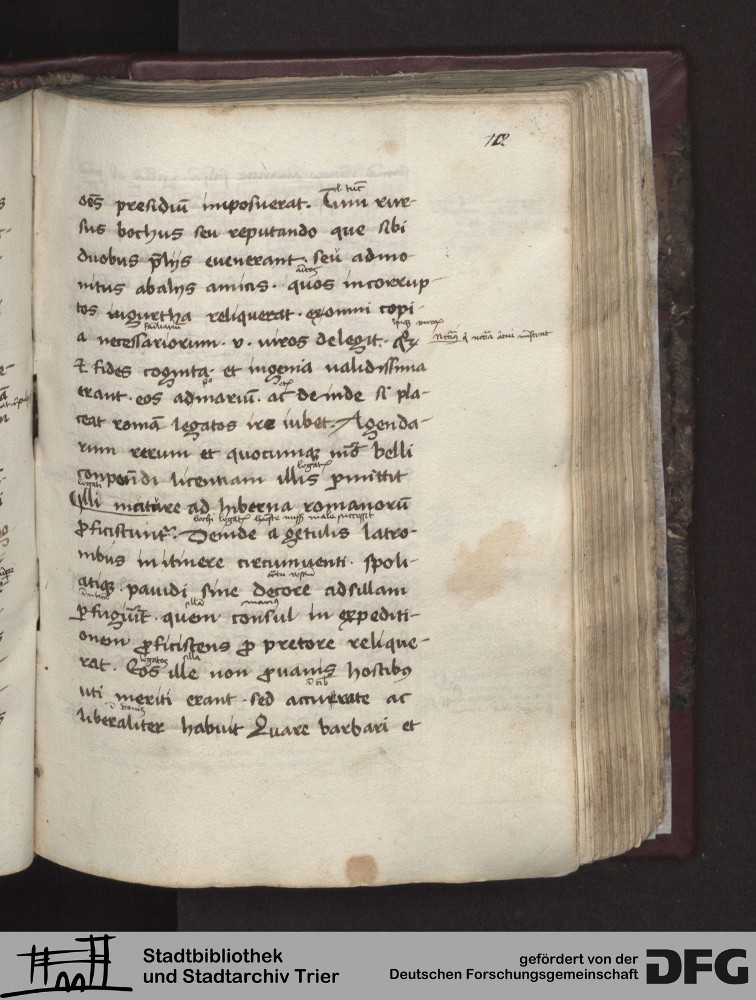 102
oēs presidiū imposuerat. Tum rur-
sus bochus seu reputando que sibi
duobus p̄liis euenerant. seu admo
nitus ab aliis amicis. quos incorrup-
tos iugurtha reliquerat. ex omni copi-
a necessariorum. v. uiros delegit. Quorum
et fides cognita. et ingenia ualidissima
erant. eos ad marium. ac deinde si pla-
ceat romā legatos ire iubet. Agenda-
rum rerum et quocumqꝫ mō belli
conponēdi licentiam illis pmittit
Illi mature ad hiberna romanorū
ꝓficiscunt̄. Deinde a getulis latro-
nibus in itinere circumuenti. spoli-
atiqꝫ. pauidi sine decore ad sillam
ꝑfugiūt. quem consul in expediti-
onem ꝓficiscens ꝓ pretore relique-
rat. Eos ille non ꝓ uanis hostibꝰ
uti meriti erant. sed accurate ac
liberaliter habuit Quare barbari et
Stadtbibliothek
und Stadtarchiv Trier
gefördert von der
Deutschen Forschungsgemeinschaft
DFG